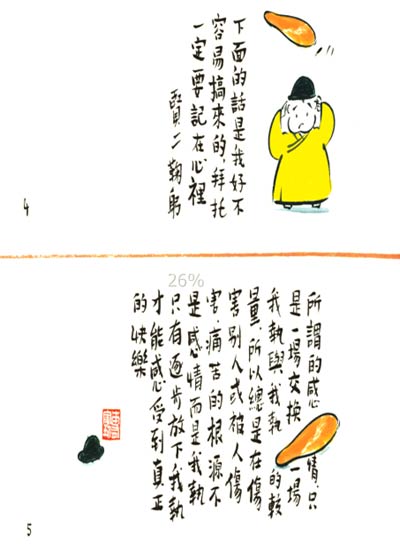 下面的話是我好不
容易搞來的,拜托
一定要記在心裡
賢二鞠躬
4
26%
所謂的感情,只
是一場交換一場
我執與我執的較
量,所以總是在傷
害別人或被人傷
害,痛苦的根源不
是感情而是我執
只有逐步放下我執
才能感受到真正
的快樂
5